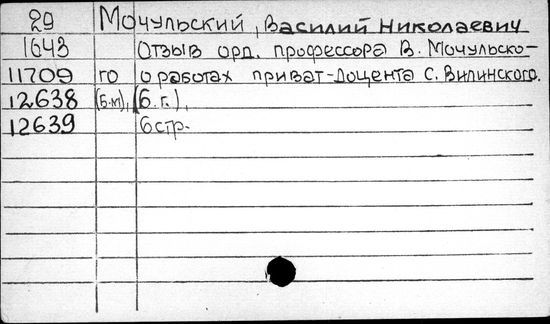 29 Мочульский, Василий Николаевич
1643 Отзыв орд. профессора В. Мочульско-
11709 го о работах приват-доцента С. Вилинского.
12638 (Б.м), (б.г.),
12639 6 стр.